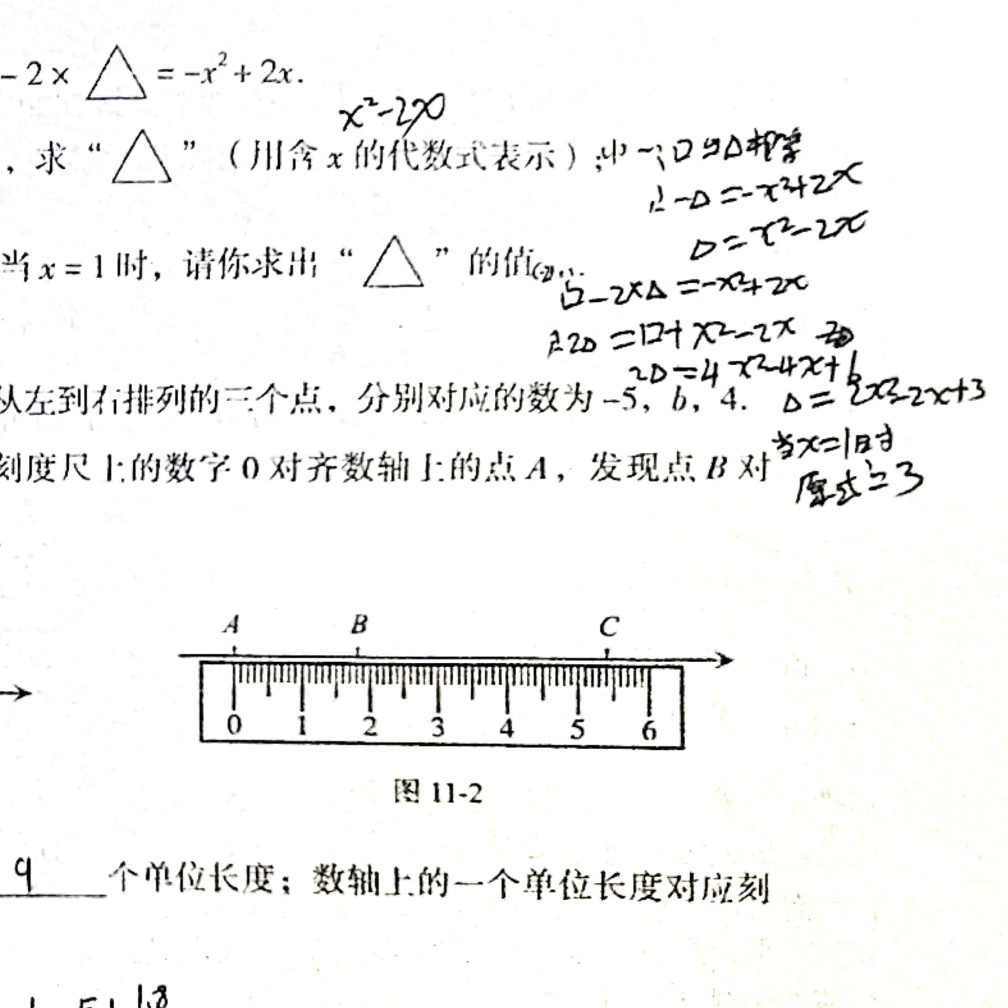 - 2 × △ = -x² + 2x.
x²-2x
，求“△”（用含 x 的代数式表示）；
□与△相等
∴-△=-x²+2x
△=x²-2x
当 x = 1 时，请你求出“△”的值
□-2×△=-x²+2x
∴2△=□+x²-2x
2△=4x²-4x+6
从左到右排列的三个点，分别对应的数为 -5，b，4.
△=2x²-2x+3
刻度尺上的数字 0 对齐数轴上的点 A，发现点 B 对
当x=1时
原式=3
A B C
0 1 2 3 4 5 6
图 11-2
9 个单位长度；数轴上的一个单位长度对应刻
1.8